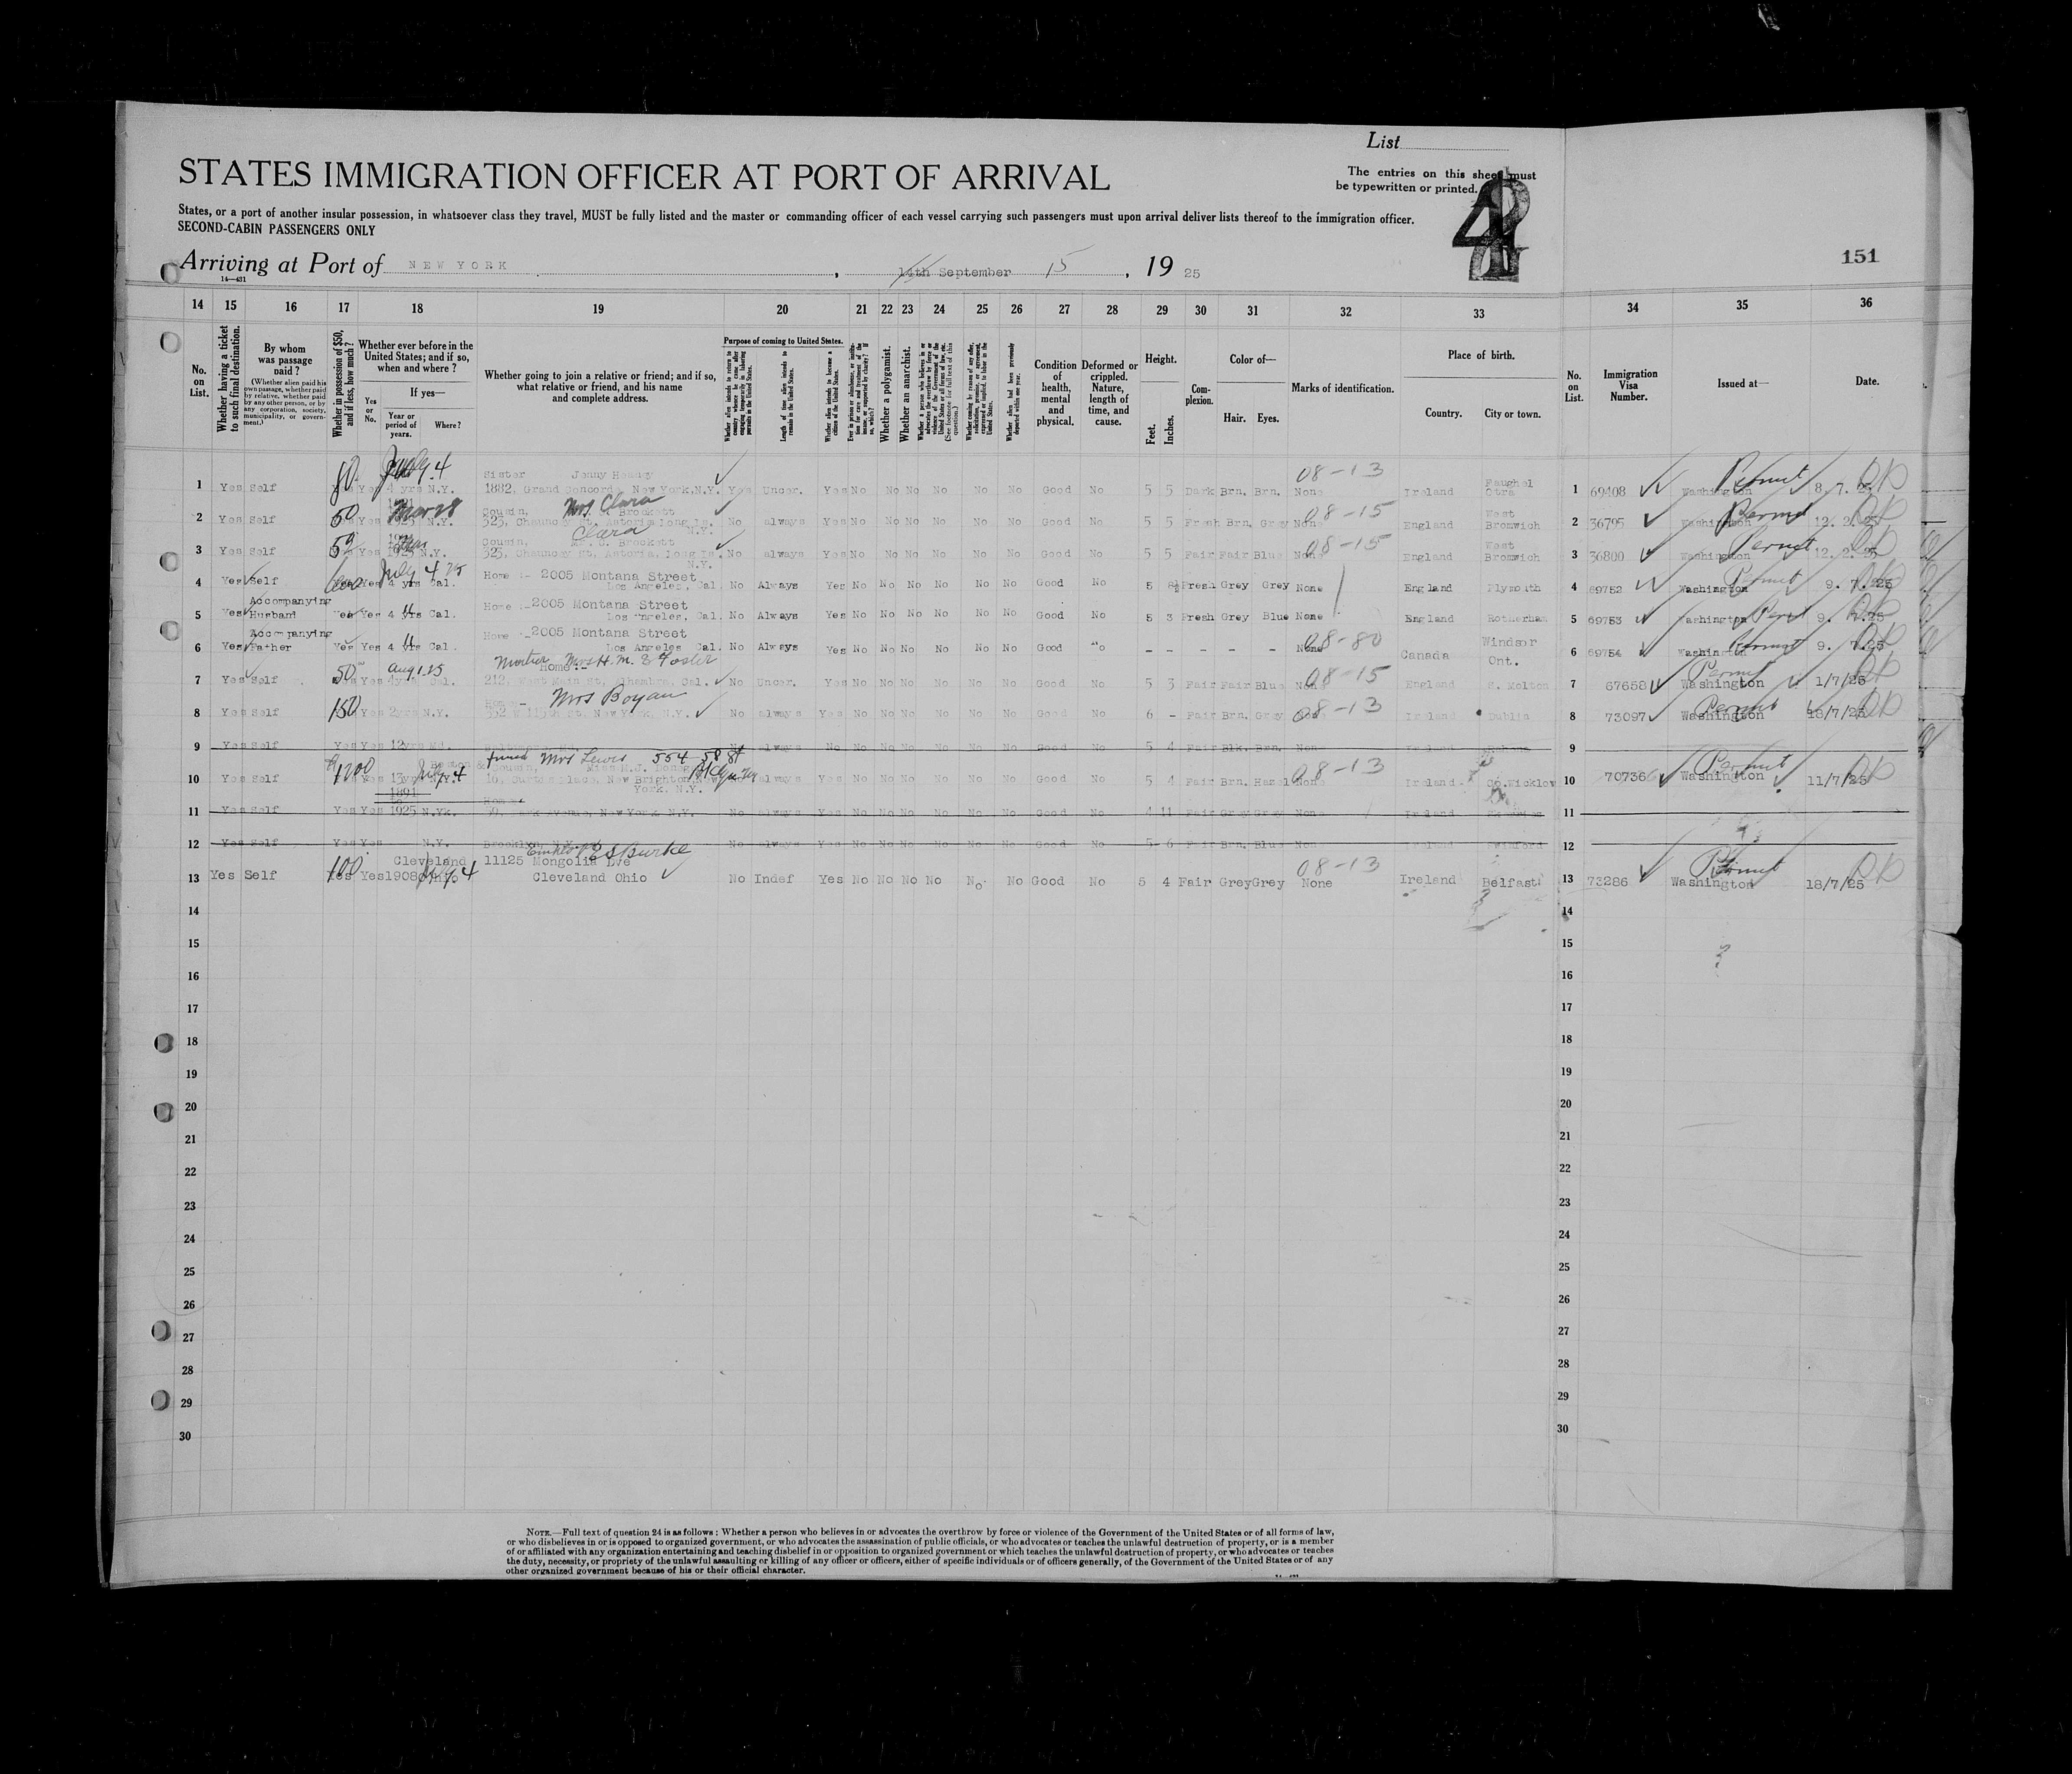 List
STATES IMMIGRATION OFFICER AT PORT OF ARRIVAL
The entries on this sheet must
be typewritten or printed.
States, or a port of another insular possession, in whatsoever class they travel, MUST be fully listed and the master or commanding officer of each vessel carrying such passengers must upon arrival deliver lists thereof to the immigration officer.
SECOND-CABIN PASSENGERS ONLY
Arriving at Port of NEW YORK , 14th September 15 , 19 25
14—431
151
14 15 16 17 18 19 20 21 22 23 24 25 26 27 28 29 30 31 32 33 34 35 36
No. on List.
Whether having a ticket to such final destination.
By whom was passage paid?
(Whether alien paid his own passage, whether paid by relative, whether paid by any other person, or by any corporation, society, municipality, or government.)
Whether in possession of $50, and if less, how much?
Whether ever before in the United States; and if so, when and where?
Yes or No.
If yes—
Year or period of years.
Where?
Whether going to join a relative or friend; and if so, what relative or friend, and his name and complete address.
Purpose of coming to United States.
Whether alien intends to return to country whence he came after engaging temporarily in laboring pursuits in the United States.
Length of time alien intends to remain in the United States.
Whether alien intends to become a citizen of the United States.
Ever in prison or almshouse, or institution for care and treatment of the insane, or supported by charity? If so, which?
Whether a polygamist.
Whether an anarchist.
Whether a person who believes in or advocates the overthrow by force or violence of the Government of the United States or all forms of law, etc. (See footnote for full text of this question.)
Whether coming by reason of any offer, solicitation, promise, or agreement, expressed or implied, to labor in the United States.
Whether alien had been previously deported within one year.
Condition of health, mental and physical.
Deformed or crippled. Nature, length of time, and cause.
Height.
Feet. Inches.
Complexion.
Color of—
Hair. Eyes.
Marks of identification.
Place of birth.
Country. City or town.
No. on List.
Immigration Visa Number.
Issued at—
Date.
1 Yes Self 80 Yes 4 yrs N.Y. Sister Jenny 1882, Grand Concord, New York, N.Y. Yes Uncer. Yes No No No No No No Good No 5 5 Dark Brn. Brn. None 08-13 Ireland Faughel Otra 1 69408 Washington Permit 8. 7. 25
2 Yes Self 50 Yes N.Y. Cousin, Mrs. Clara Brockett 323, Chauncey St, Astoria Long Is. N.Y. No always Yes No No No No No No Good No 5 5 Fresh Brn. Grey None 08-15 England West Bromwich 2 36795 Washington Permit 12. 2. 25
3 Yes Self 50 Yes N.Y. Cousin, Clara Brockett 323, Chauncey St, Astoria, Long Is. N.Y. No always Yes No No No No No No Good No 5 5 Fair Fair Blue None 08-15 England West Bromwich 3 36800 Washington Permit 12. 2. 25
4 Yes Self Yes 4 yrs Cal. July 4 25 Home :- 2005 Montana Street Los Angeles, Cal. No Always Yes No No No No No No Good No 5 8½ Fresh Grey Grey None England Plymouth 4 69752 Washington Permit 9. 7. 25
5 Yes Accompanying Husband Yes Yes 4 yrs Cal. Home :- 2005 Montana Street Los Angeles, Cal. No Always Yes No No No No No No Good No 5 3 Fresh Grey Blue None England Rotherham 5 69753 Washington Permit 9. 7.25
6 Yes Accompanying Father Yes Yes 4 yrs Cal. Home :- 2005 Montana Street Los Angeles Cal. No Always Yes No No No No No No Good No - - - - - None 08-80 Canada Windsor Ont. 6 69754 Washington Permit 9. 7.25
7 Yes Self 50 Yes 4yrs Cal. Aug 1.25 Mother Mrs H. M. E Foster Home :- 212, West Main St, Alhambra, Cal. No Uncer. Yes No No No No No No Good No 5 3 Fair Fair Blue None 08-15 England S. Molton 7 67658 Washington Permit 1/7/25
8 Yes Self 150 Yes 2yrs N.Y. Home - Mrs Boyan 352 W 115th St. New York, N.Y. No always Yes No No No No No No Good No 6 - Fair Brn. Grey 08-13 Ireland Dublin 8 73097 Washington Permit 18/7/25
9 Yes Self Yes Yes 12yrs Md. No always No No No No No No No Good No 5 4 Fair Blk. Brn. None Ireland 9
10 Yes Self 1200 Yes 13yrs N.Y. July 4 friend Mrs Lewis 554 - 58 St Bklyn Ny Cousin, Miss M.J. 16, Curtis Place, New Brighton, New York, N.Y. always Yes No No No No No No Good No 5 4 Fair Brn. Hazel None 08-13 Ireland Co. Wicklow 10 70736 Washington Permit 11/7/25
11 Yes Self Yes Yes 1891 1925 N.Yk. Home 59, Park Avenue, New York N.Y. No always Yes No No No No No No Good No 4 11 Fair Grey Grey None Ireland 11
12 Yes Self Yes Yes N.Y. Brooklyn, N.Y. No always Yes No No No No No No Good No 5 6 Fair Brn. Blue None Ireland Swinford 12
13 Yes Self 100 Yes Yes 1908 Cleveland Ohio July 4 Employer E S Burke 11125 Mongolia Eve Cleveland Ohio No Indef Yes No No No No No No Good No 5 4 Fair Grey Grey None 08-13 Ireland Belfast 13 73286 Washington Permit 18/7/25
14 14
15 15
16 16
17 17
18 18
19 19
20 20
21 21
22 22
23 23
24 24
25 25
26 26
27 27
28 28
29 29
30 30
NOTE.—Full text of question 24 is as follows: Whether a person who believes in or advocates the overthrow by force or violence of the Government of the United States or of all forms of law,
or who disbelieves in or is opposed to organized government, or who advocates the assassination of public officials, or who advocates or teaches the unlawful destruction of property, or is a member
of or affiliated with any organization entertaining and teaching disbelief in or opposition to organized government or which teaches the unlawful destruction of property, or who advocates or teaches
the duty, necessity, or propriety of the unlawful assaulting or killing of any officer or officers, either of specific individuals or of officers generally, of the Government of the United States or of any
other organized government because of his or their official character.